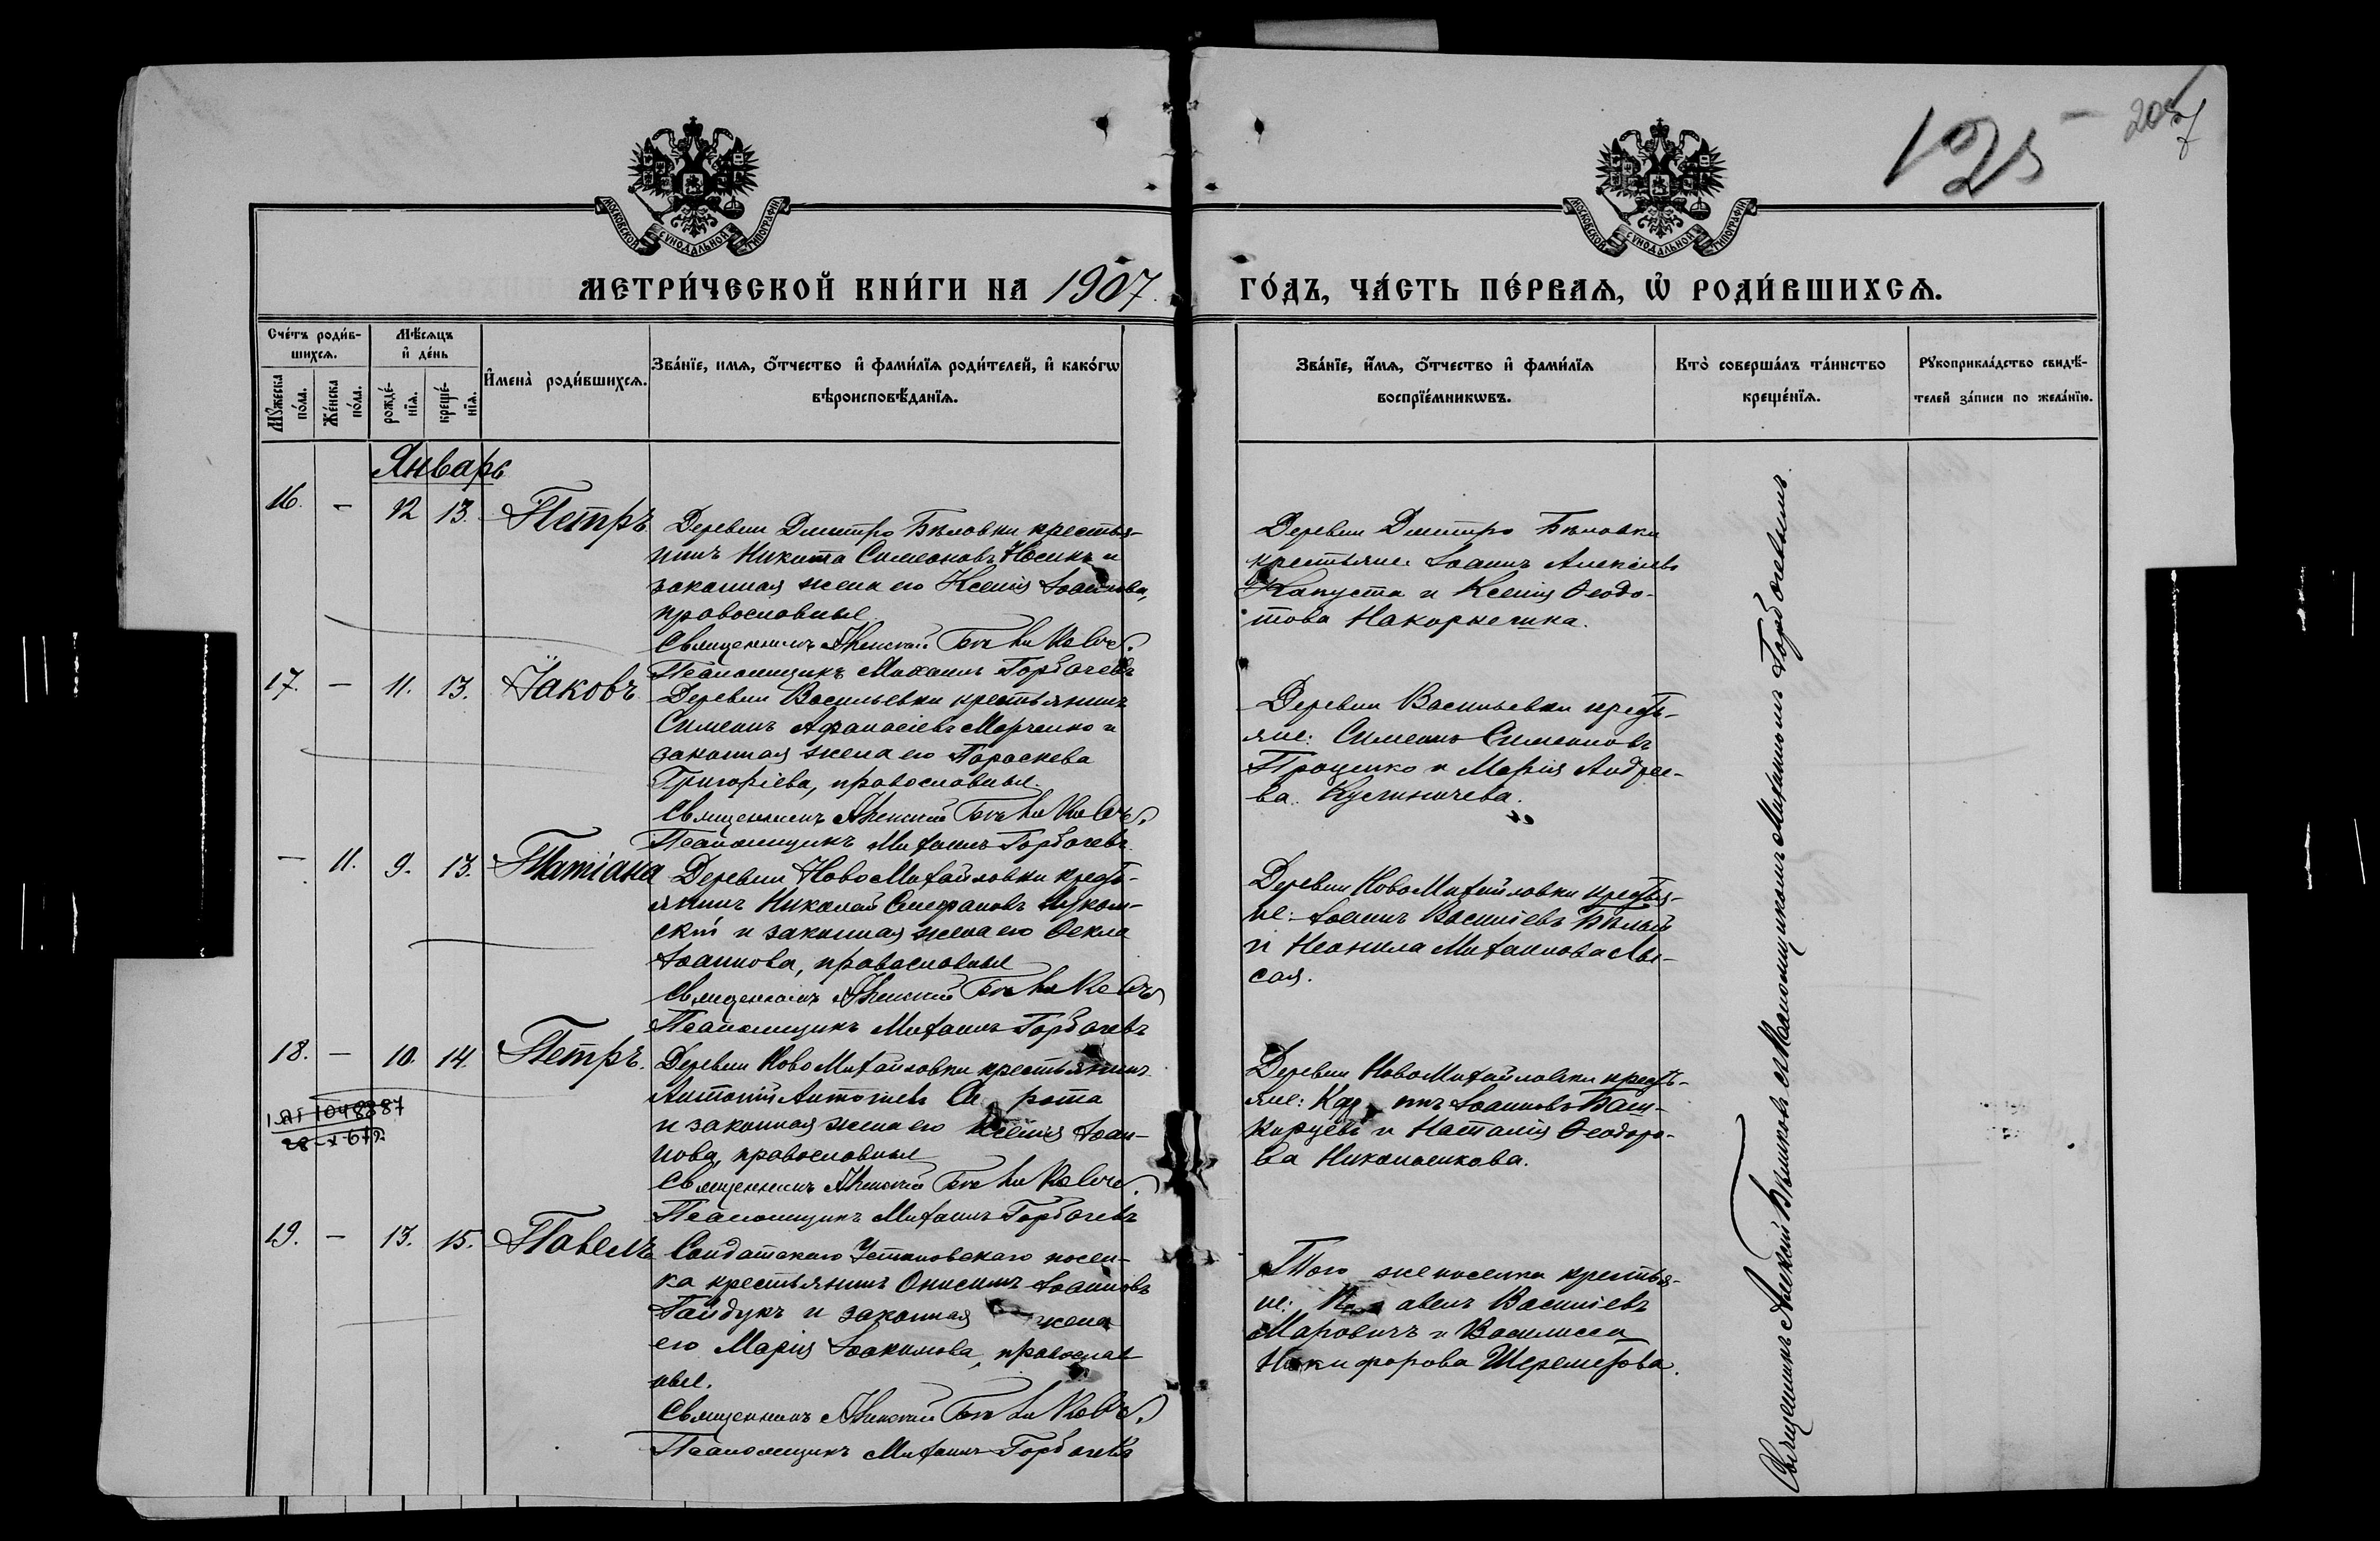 125
205
МОСКОВСКОЙ СѴНОДАЛЬНОЙ ТИПОГРАФІИ
МОСКОВСКОЙ СѴНОДАЛЬНОЙ ТИПОГРАФІИ
МЕТРИ́ЧЕСКОЙ КНИ́ГИ НА 1907 ГО́ДЪ, ЧА́СТЬ ПЕ́РВАѦ, Ѡ҆ РОДИ́ВШИХСѦ.
Сче́тъ роди́в-
шихсѧ.
Мꙋ́жеска
по́ла.
Же́нска
по́ла.
Мѣ́сѧцъ
и҆ де́нь
рожде́-
нїѧ.
креще́-
нїѧ.
И҆мена̀ роди́вшихсѧ.
Зва́нїе, имѧ, ѻ҆́тчество и҆ фами́лїѧ роди́телей, и҆ како́гѡ
вѣроисповѣ́данїѧ.
Зва́нїе, и҆́мѧ, ѻ҆́тчество и҆ фами́лїѧ
воспрїе́мникѡвъ.
Кто̀ соверша́лъ та́инство
креще́нїѧ.
Рꙋкоприкла́дство свидѣ́-
телей за́писи по жела́нїю.
Январь
16. — 12 13. Петръ
Деревни Дмитро Бѣловки крестья-
нинъ Никита Симеоновъ Носикъ и
законная жена его Ксенія Іоаннова,
православные
Священникъ Алексий
Псаломщикъ Михаилъ Горбачевъ
Деревни Дмитро Бѣловки
крестьяне: Іоаннъ Алексіевъ
Капуста и Ксенія Ѳеодо-
това Накорнешка.
17. — 11. 13. Іаковъ
Деревни Васильевки крестьянинъ
Симеонъ Аѳанасіевъ Марченко и
законная жена его Параскева
Григоріева, православные.
Священникъ Алексий
Псаломщикъ Михаилъ Горбачевъ
Деревни Васильевки кресть-
яне: Симеонъ Симеоновъ
Проценко и Марія Андрее-
ва Кулиничева.
— 11. 9. 13. Татіана
Деревни НовоМихайловки кресть-
янинъ Николай Стефановъ
скій и законная жена его Ѳекла
Іоаннова, православные
Священникъ Алексий
Псаломщикъ Михаилъ Горбачевъ
Деревни НовоМихайловки крестья-
не: Іоаннъ Василіевъ Бѣлый
и Неонила Михаилова Лы-
сая.
18. — 10. 14. Петръ.
Деревни НовоМихайловки крестьянинъ
Антоній Антоніевъ Си рота
и законная жена его Ксенія Іоан-
нова, православные
Священникъ Алексий
Псаломщикъ Михаилъ Горбачевъ
Деревни НовоМихайловки кресть-
яне: Іоанновъ Баш-
кирцевъ и Наталія Ѳеодоро-
ва Николаенкова.
19. — 13. 15. Павелъ
Солдатскаго Устиновскаго посел-
ка крестьянинъ Онисимъ Іоанновъ
Гайдукъ и законная жена
его Марія Іоакимова, православ
ные.
Священникъ Алексий
Псаломщикъ Михаилъ Горбачевъ
Того же поселка крестья-
не: Павелъ Василіевъ
Маровичъ и Василисса
Никифорова Шереметова.
Священникъ Алексій Бѣликовъ съ Псаломщикомъ Михаиломъ Горбачевымъ.